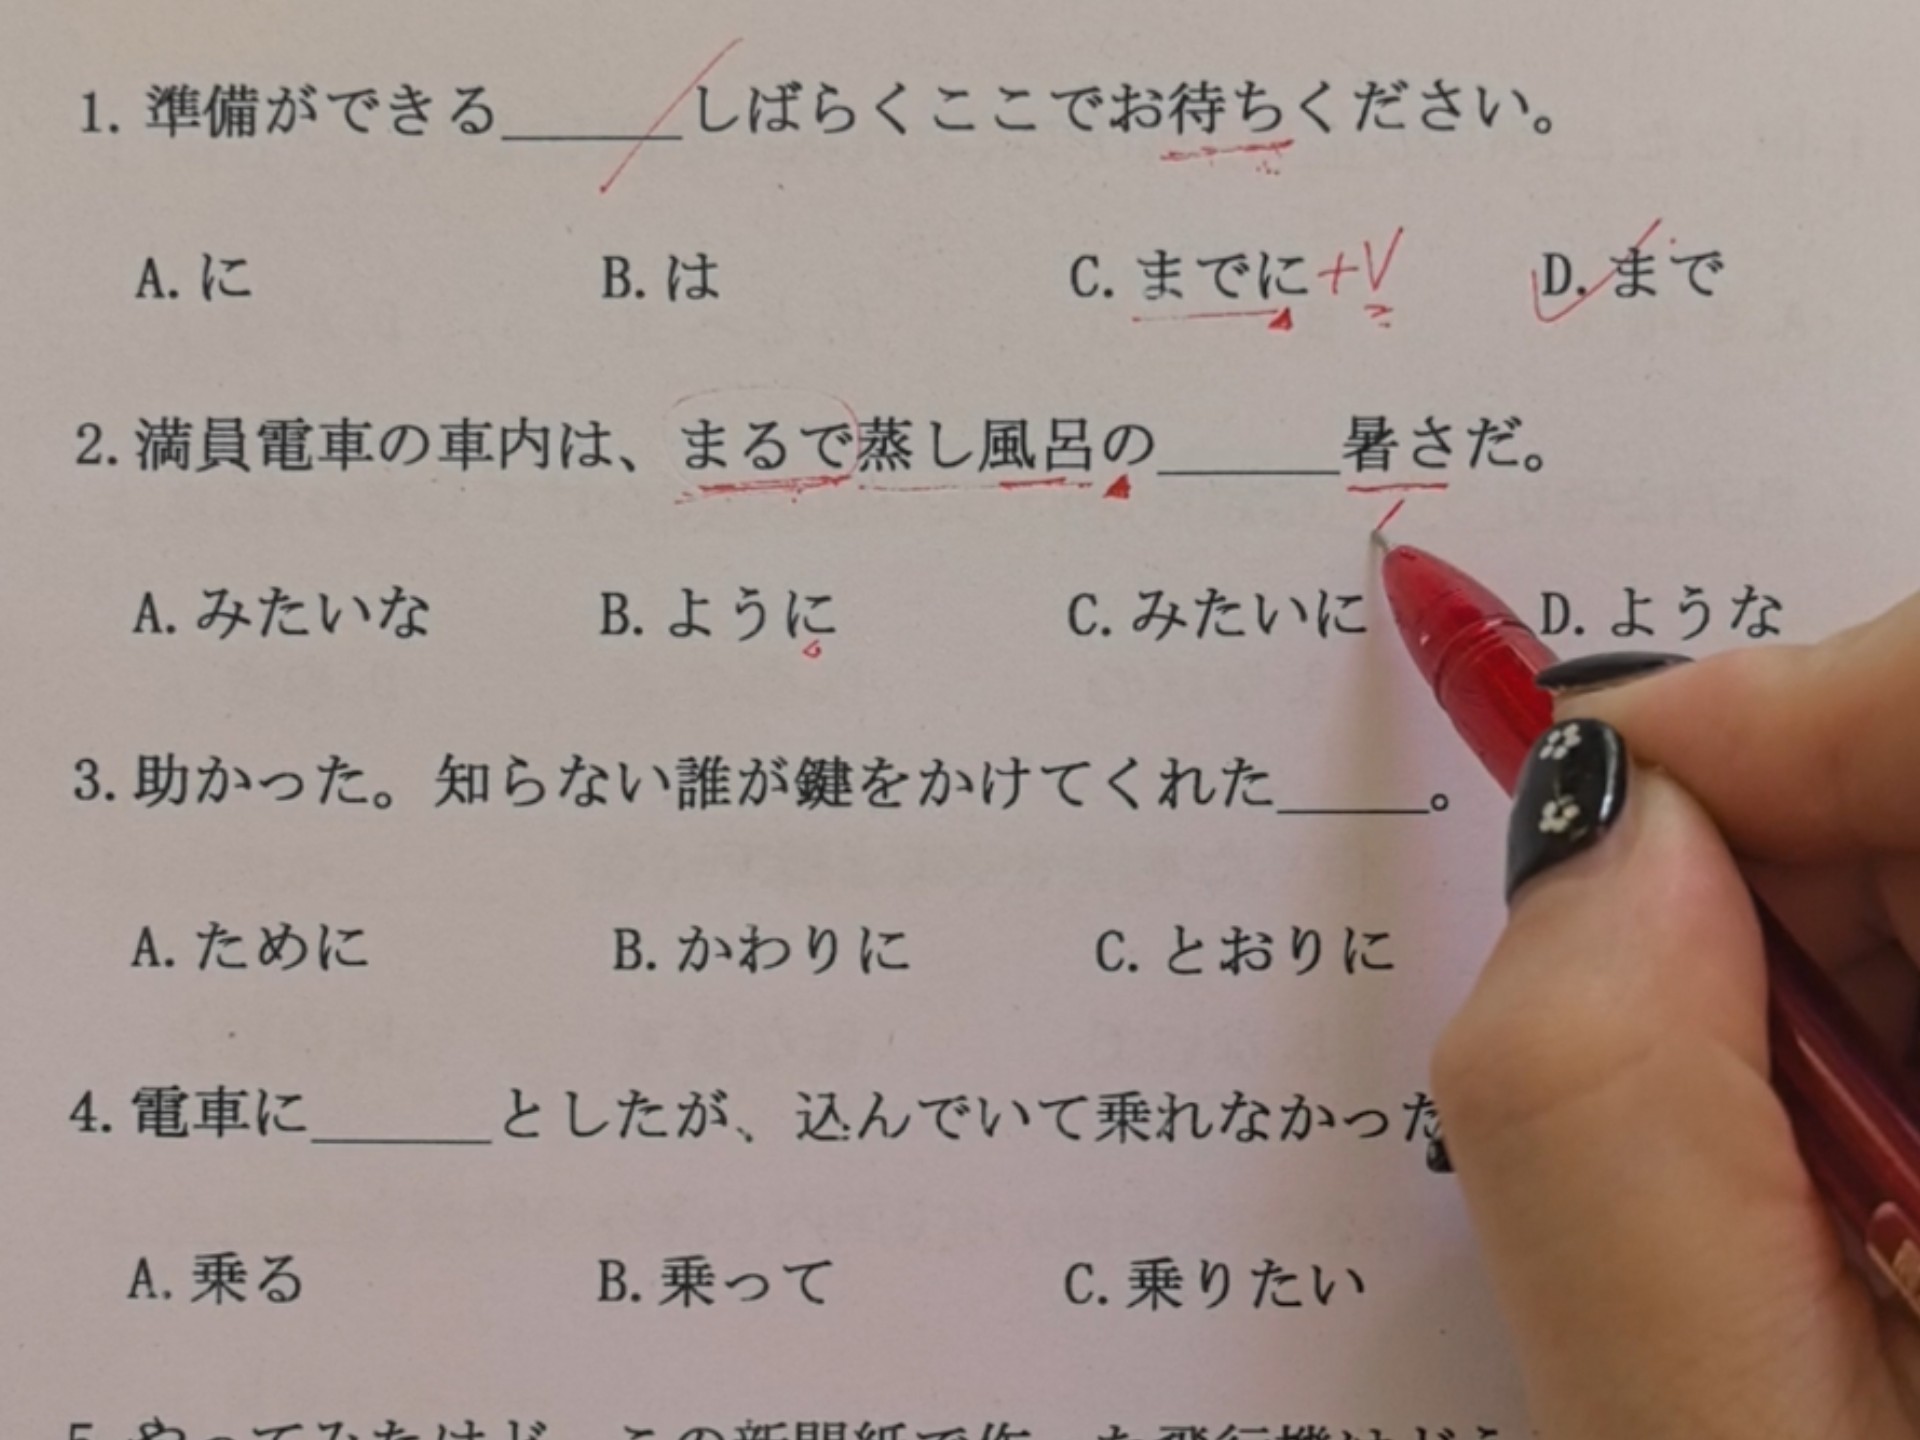 1. 準備ができる______しばらくここでお待ちください。
A. に B. は C. までに +V D. まで
2. 満員電車の車内は、まるで蒸し風呂の______暑さだ。
A. みたいな B. ように C. みたいに D. ような
3. 助かった。知らない誰が鍵をかけてくれた_____。
A. ために B. かわりに C. とおりに
4. 電車に______としたが、込んでいて乗れなかった
A. 乗る B. 乗って C. 乗りたい
5. やってみたけど、この新聞紙で作った飛行機はどう